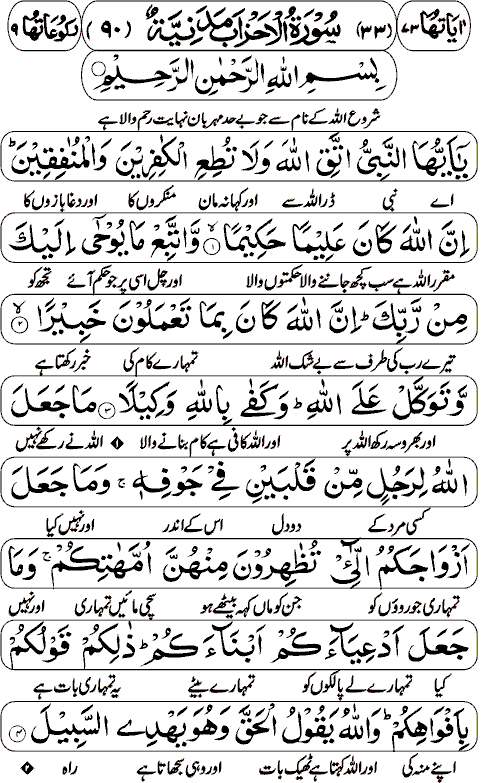 اٰیَاتُهَا ٧٣ (٣٣) سُوْرَةُ الْاَحْزَابِ مَدَنِیَّةٌ (٩٠) رُكُوْعَاتُهَا ٩
بِسْمِ اللّٰهِ الرَّحْمٰنِ الرَّحِیْمِ
شروع اللہ کے نام سے جو بے حد مہربان نہایت رحم والا ہے
یٰۤاَیُّهَا النَّبِیُّ اتَّقِ اللّٰهَ وَلَا تُطِعِ الْكٰفِرِیْنَ وَالْمُنٰفِقِیْنَ ؕ
اے نبی ڈر اللہ سے اور کہا نہ مان منکروں کا اور دغابازوں کا
اِنَّ اللّٰهَ كَانَ عَلِیْمًا حَكِیْمًا ۙ١ وَّاتَّبِعْ مَا یُوْحٰۤی اِلَیْكَ
مقرر اللہ ہے سب کچھ جاننے والا حکمتوں والا اور چل اسی پر جو حکم آئے تجھ کو
مِنْ رَّبِّكَ ؕ اِنَّ اللّٰهَ كَانَ بِمَا تَعْمَلُوْنَ خَبِیْرًا ۙ٢
تیرے رب کی طرف سے بے شک اللہ تمہارے کام کی خبر رکھتا ہے
وَّتَوَكَّلْ عَلَی اللّٰهِ ؕ وَكَفٰی بِاللّٰهِ وَكِیْلًا ٣ مَا جَعَلَ
اور بھروسہ رکھ اللہ پر اور اللہ کافی ہے کام بنانے والا ۝ اللہ نے رکھے نہیں
اللّٰهُ لِرَجُلٍ مِّنْ قَلْبَیْنِ فِیْ جَوْفِهٖ ۚ وَمَا جَعَلَ
کسی مرد کے دو دل اس کے اندر اور نہیں کیا
اَزْوَاجَكُمُ الّٰٓـِٔیْ تُظٰهِرُوْنَ مِنْهُنَّ اُمَّهٰتِكُمْ ۚ وَمَا
تمہاری جوروؤں کو جن کو ماں کہہ بیٹھے ہو سچی مائیں تمہاری اور نہیں
جَعَلَ اَدْعِیَآءَكُمْ اَبْنَآءَكُمْ ؕ ذٰلِكُمْ قَوْلُكُمْ
کیا تمہارے لے پالکوں کو تمہارے بیٹے یہ تمہاری بات ہے
بِاَفْوَاهِكُمْ ؕ وَاللّٰهُ یَقُوْلُ الْحَقَّ وَهُوَ یَهْدِی السَّبِیْلَ ٤
اپنے منہ کی اور اللہ کہتا ہے ٹھیک بات اور وہی سجھاتا ہے راہ ۝